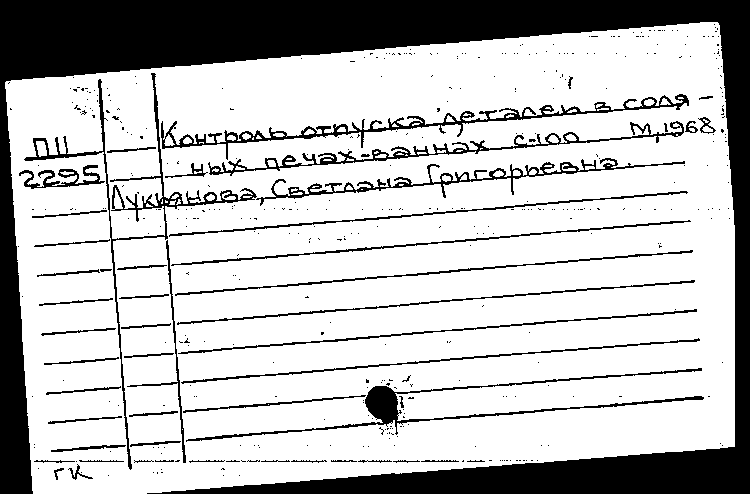 П11
2295
Контроль отпуска деталей в соля-
ных печах-ваннах С-100 М, 1968.
Лукьянова, Светлана Григорьевна.
ГК